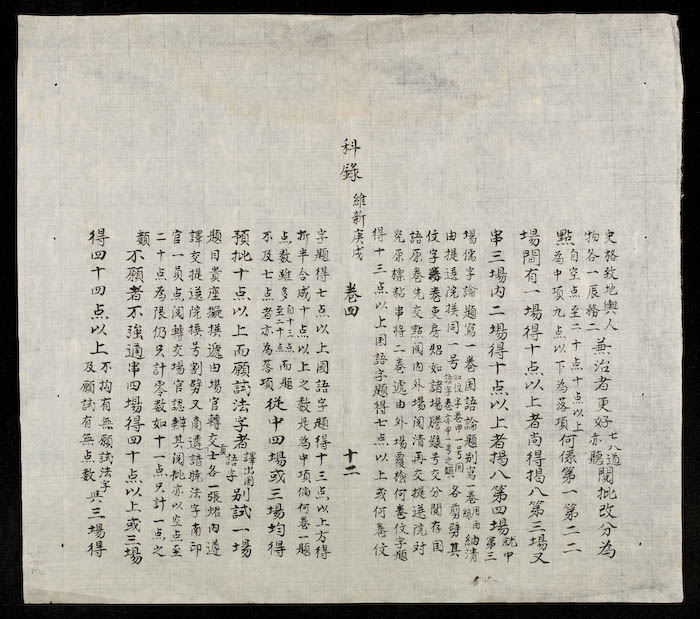 史格致地輿人
物各一辰務二
兼治者更好
七八道
亦聽
閱批改分為
點
自空点至二十点十点以上
為中項九点以下為落項
何係第一第二二
場間有一場得十点以上者尚得揭八第三場又
串三場内二場得十点以上者揭八第四場
就中
第三
場儒字論題寫一卷国語論題別寫一卷
納清
由提送院揆同一号
各剪劈其
伩字卷更房炤如諸場謄騐号交分閱存国
語原卷先交點閱内外場閱清再交提送院对
究原標粘串將二卷遞由外場覆檢何卷伩字題
得十三点以上国語字題得七点以上或何卷伩
科錄
維新庚戌
卷四
十二
字題得七点以上國語字題得十三点以上方得
折半合成十点以上之数是為中項倘何卷一題
点数雖多
自十三点
至二十点
而題
不及七点者亦為落項
從中四場或三場均得
預批十点以上而願試法字者
譯出国
語字
別試一場
題目貴座擬揆遞由場官轉交士各一張炤内遵
譯交提送院揆号割劈又商遘諳曉法字南印
官一員点閱轉交場官認轉其閱批亦以空点至
二十点為限仍只計零数如十一点只計一点之
類
不願者不強適串四場得四十点以上或三場
得四十四点以上
不拘有無願試法字
及願試有無点数
與三場得